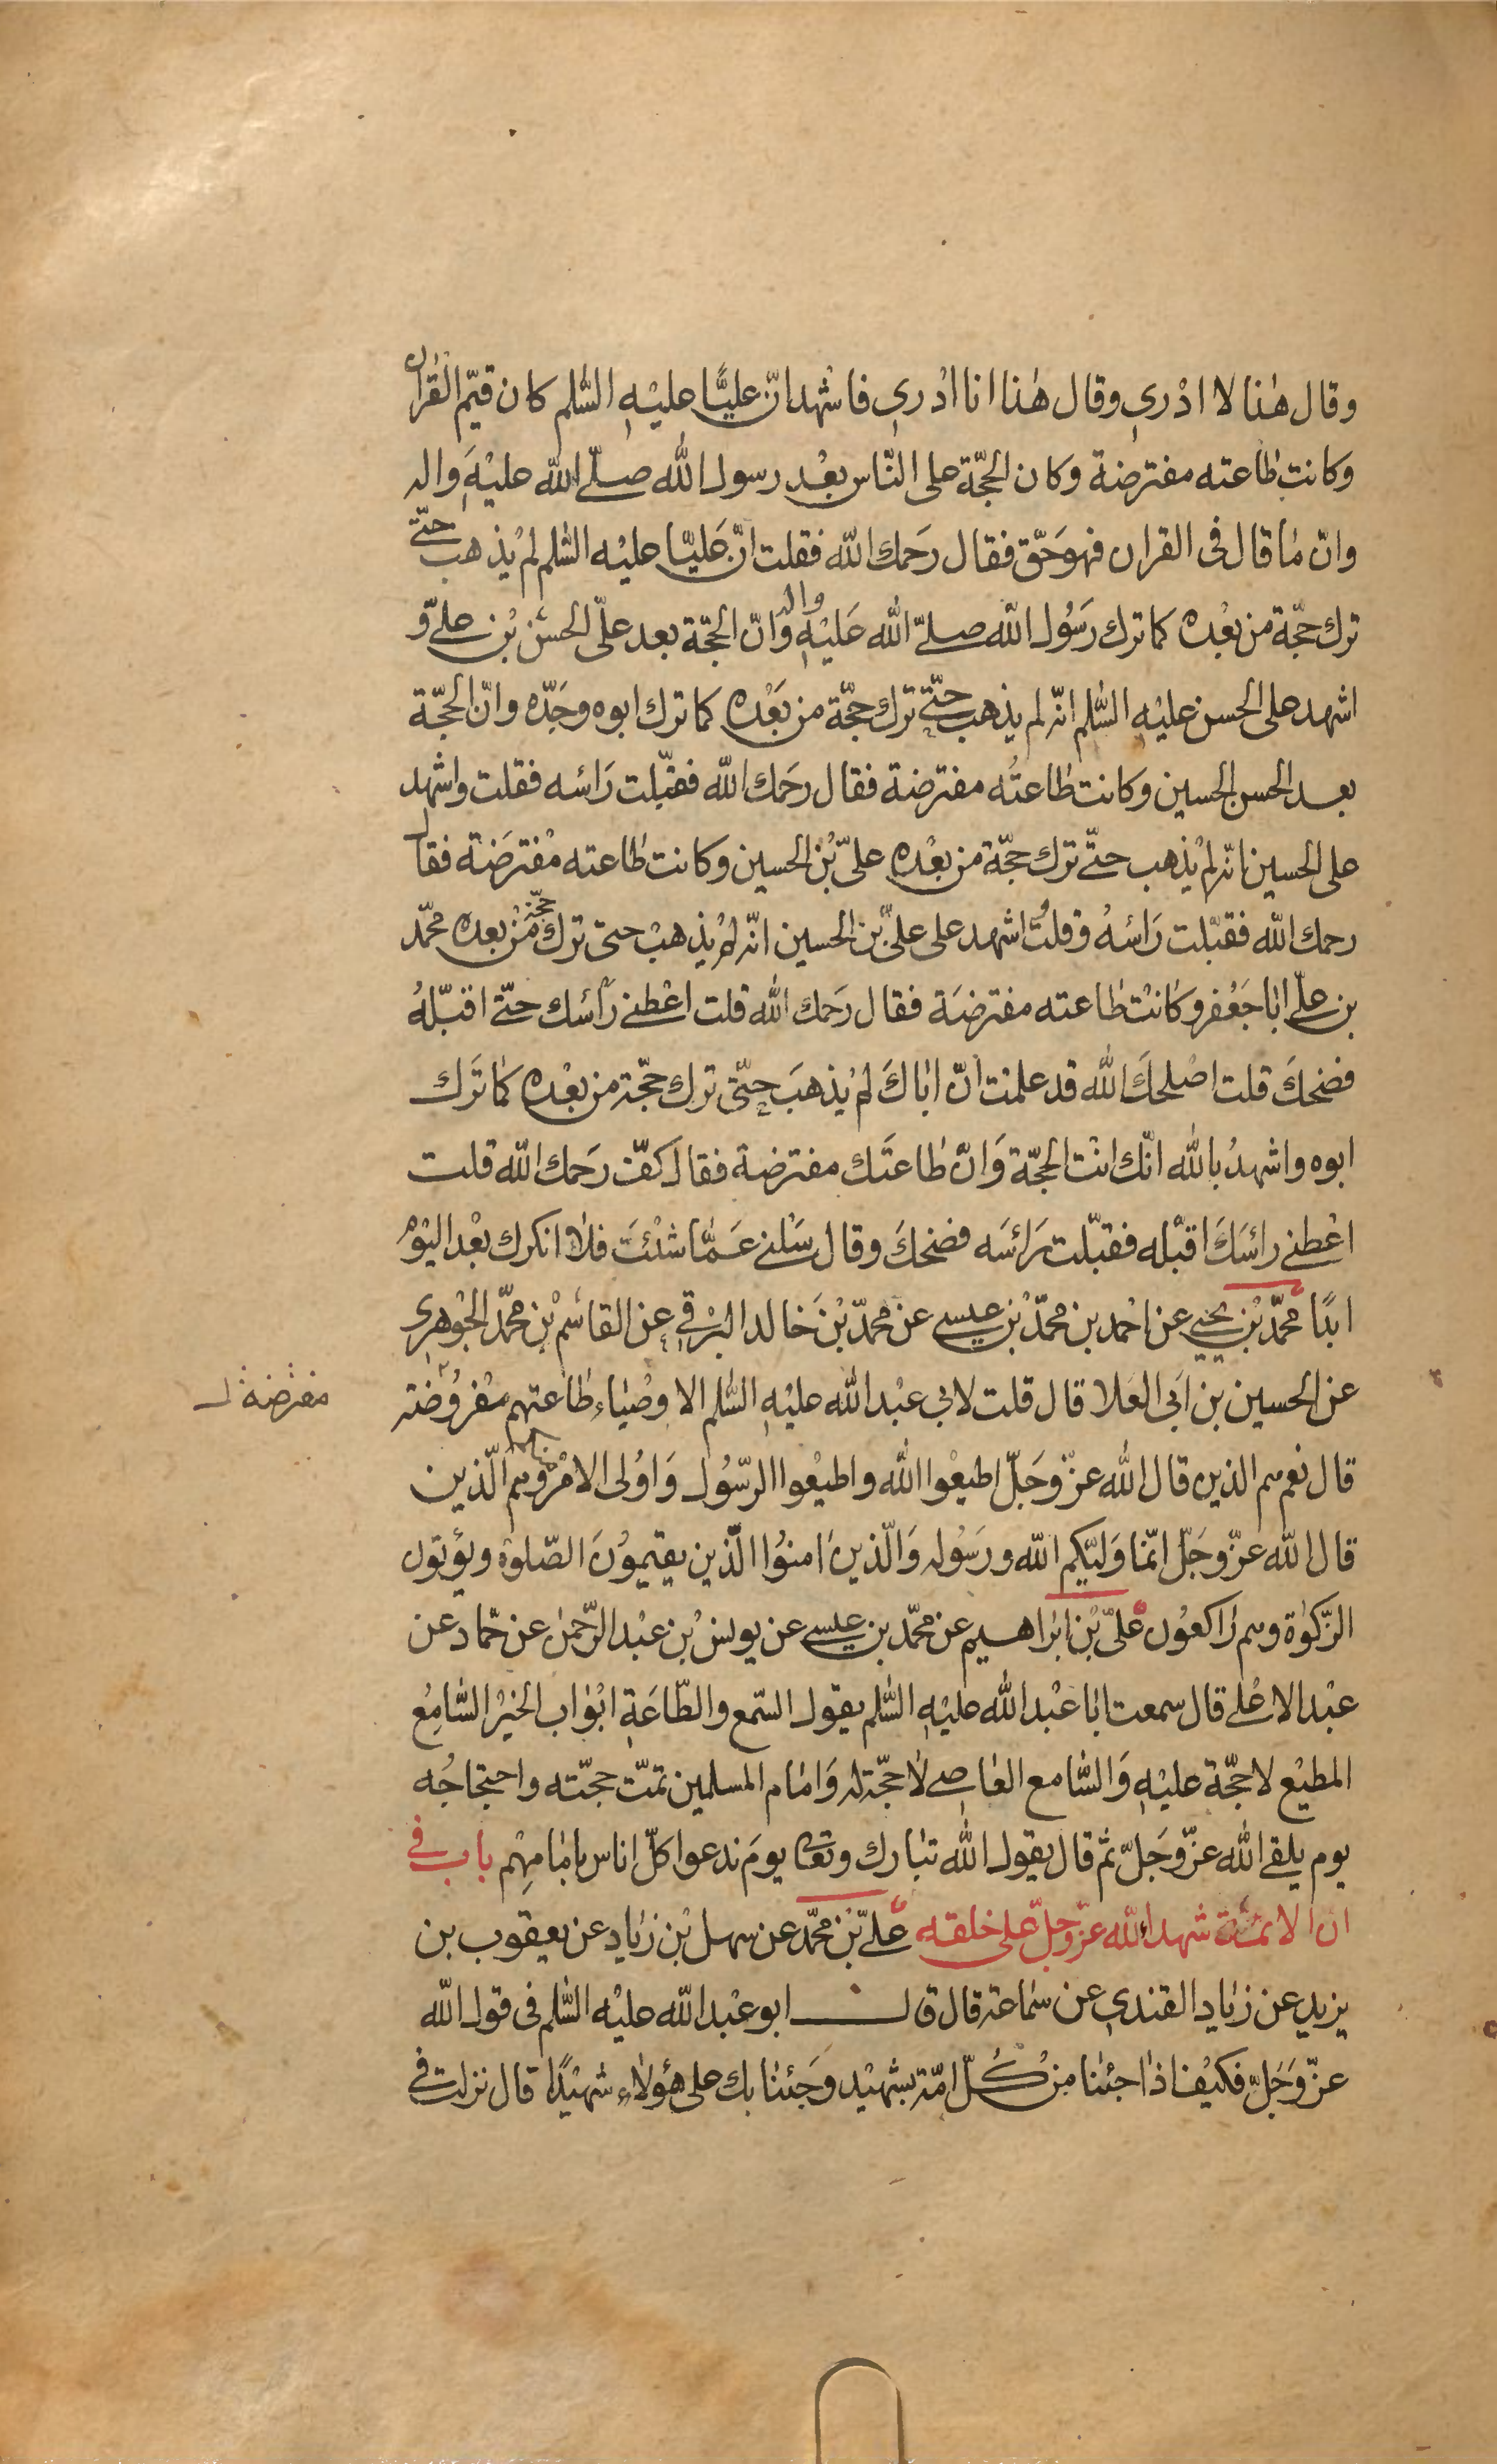 وقال هٰذا لا ادْري وقال هٰذا انا ادْري فاشْهد انّ عليًّا عليْهِ السّلم كان قيّم القُران
وكانت طاعته مفترضة وكان الحجّة على النّاس بعْد رسول الله صلّى الله عليْهَ واله
وانّ مٰا قال فى القران فهو حَقّ فقال رحَمك الله فقلت انّ عَليّا عليْه السّلم لم يْذهب حتّى
ترك حجّة من بعْده كما ترك رَسُول الله صلّى الله عَليْهِ واله وانّ الحجّة بعد علىّ الحسَن بْن علىّ و
اشهد على الحسن عليْهِ السَّلم انّه لم يذهب حتّى ترك حجّة من بَعْده كما ترك ابوه وجَدّه وانّ الحجّة
بعد الحسن الحسين وكانت طاعتُه مفترضة فقال رحَمك الله فقبّلت رَاسُه فقلت واشهد
على الحسين انّه لم يْذهب حتّى ترك حجّة من بعْده علىّ بْن الحسين وكانت طاعته مفْترضَة فقال
رحمك الله فقبّلت رَاسُه وقلت واشهد على علىّ بْن الحسين انّه لم يْذهبْ حتى ترك حجّة منْ بعده محمّد
بن علىّ ابٰا جَعْفر وكانتْ طاعته مفترضَة فقال رحَمك الله قلت اعْطنى رَأسَك حتّى اقبّلهُ
فضحكَ قلت اصْلحكَ الله قد علمْت انّ ابٰاكَ لم يْذهبَ حتّى ترك حجّة من بعْده كما ترَك
ابوه واشهدُ بالله انّك انْت الحجّة وَانّ طاعتَك مفترضة فقال كفّ رَحمك الله قلت
اعْطنى رأسَكَ اقبّله فقبّلت رَأسَه فضحكَ وقال سَلنى عَمّا شئْتَ فلا انكرك بعْد اليَوْم
ابدًا محمّد بْن يحْيى عن احْمد بن محمّد بْن عيسى عن محمّد بْن خَالد البرْقى عن القاسم بْن محمّد الجوْهرى
عن الحسين بن ابَى العَلا قال قلت لابى عبْد الله عليْهِ السّلم الاوْصياء طاعتهم مفْروُضة
مفترضة ل
قال نعم هم الذين قال الله عزّ وجَلّ اطيعْوا الله واطيعْوا الرّسُول وَاوُلى الامْر منكم وهم الّذين
قال الله عزّ وجَلّ انّما وَليّكم الله ورَسُوله وَالّذينَ اٰمنوُا الّذين يقيموُنَ الصّلوة ويؤتون
الزّكوٰة وهم رٰاكعُون علىّ بْن ابْراهيم عن محمّد بن عيسى عن يونسْ بْن عبْد الرّحمن عن حمّاد عن
عبْد الاعْلى قال سمعت ابٰا عبْد الله عليْهِ السّلم يقول السّمع والطّاعَة ابْوٰاب الخيْر السّامعُ
المطيعْ لا حجّة عليْهِ وَالسّامع العٰاصى لاٰ حجّة له وَامٰام المسلمين تمتّ حجّته واحتجاجُه
يوم يلقى الله عزّ وَجَلّ ثم قال يقول الله تبارك وتعالى يومَ ندعوا كلّ اناس بامٰامهِم باب فى
انّ الائمّة شهداء الله عزّ وجلّ على خلقه علىّ بْن محمّد عن سهل بْن زياد عن يعقوب بن
يزيد عن زيٰاد القندى عن سماعة قال قال ابو عبْد الله عليْه السّلم فى قول الله
عزّ وَجَلّ فكيْف اذا جئنا منْ كُلّ امّة بشهيْد وَجئنا بك على هٰؤلاء شهيْدًا قال نزلت فى